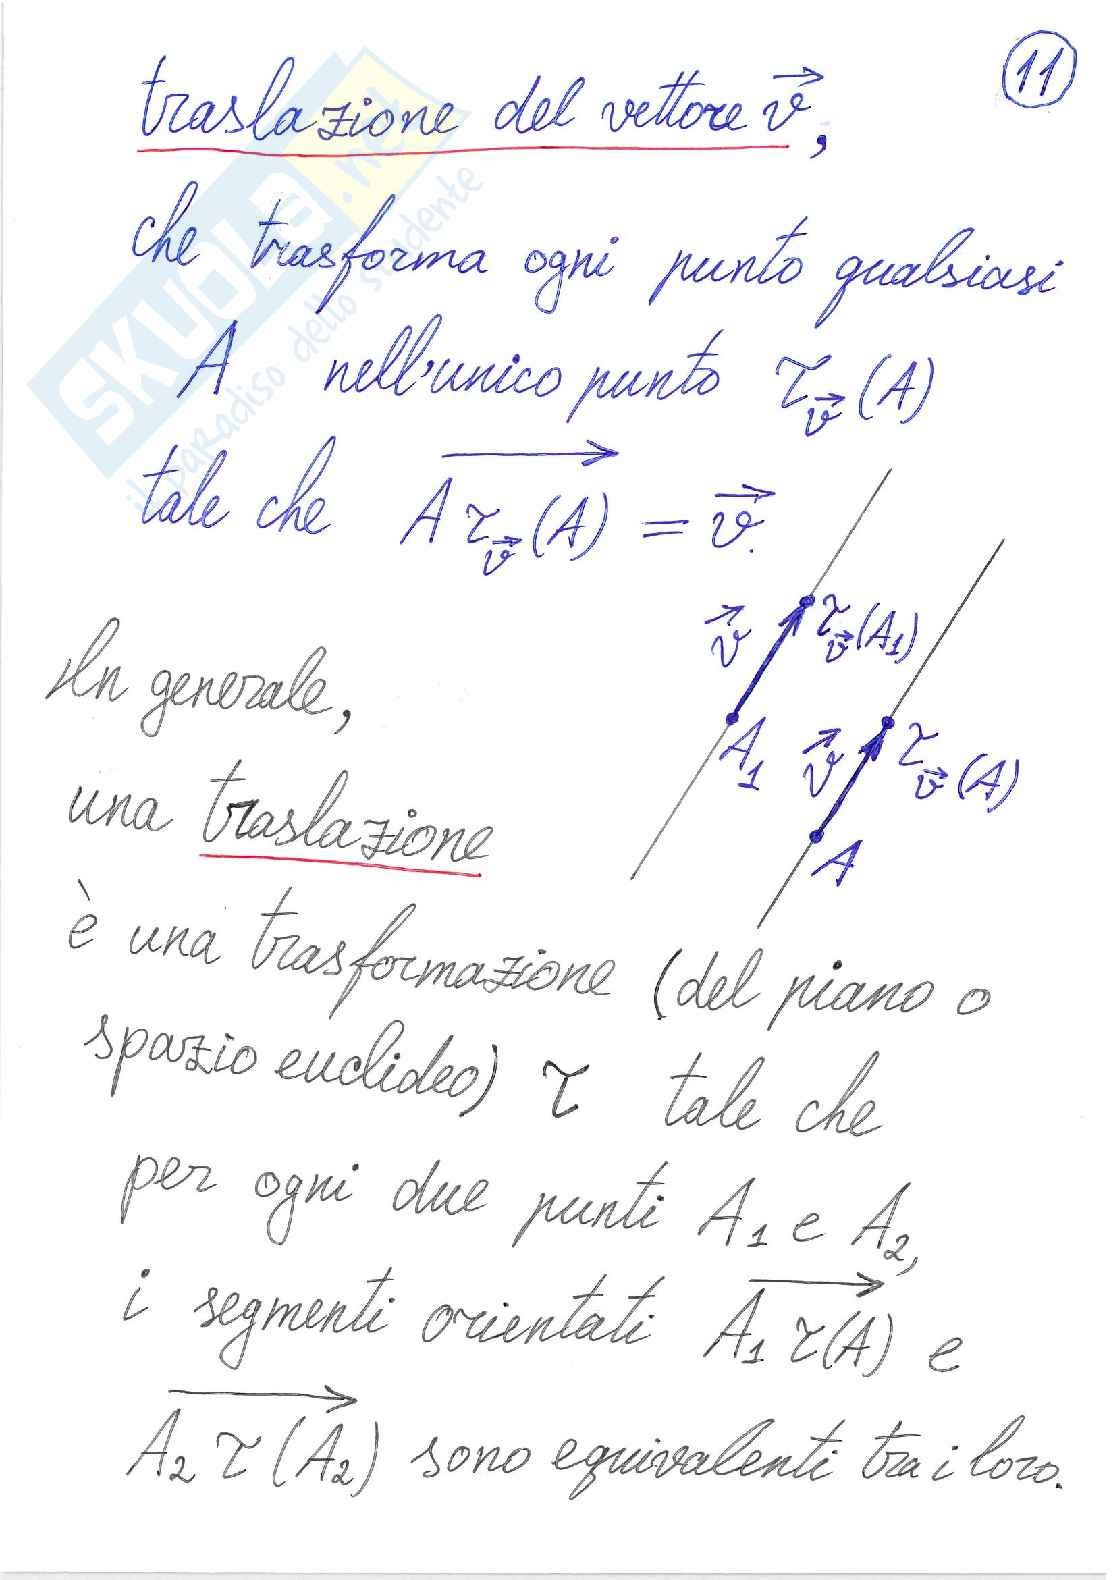 11
traslazione del vettore v⃗,
che trasforma ogni punto qualsiasi
A nell'unico punto τ_v⃗(A)
tale che \overrightarrow{Aτ_v⃗(A)} = v⃗.
v⃗ τ_v⃗(A₁)
A₁ v⃗ τ_v⃗(A)
A
In generale,
una traslazione
è una trasformazione (del piano o
spazio euclideo) τ tale che
per ogni due punti A₁ e A₂,
i segmenti orientati \overrightarrow{A₁τ(A)} e
\overrightarrow{A₂τ(A₂)} sono equivalenti tra i loro.
SKUOLA.net
il paradiso dello studente